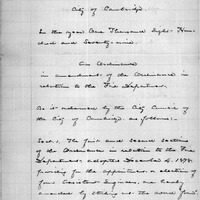 City of Cambridge.
In the year One Thousand Eight Hun-
dred and Seventy-nine.
An Ordinance
in amendment of the Ordinance in
relation to the Fire Department.
Be it ordained by the City Council of
the City of Cambridge as follows:-
Sect. 1. The first and second sections
of the Ordinance in relation to the Fire
Department, adopted December 4, 1878,
providing for the appointment or election of
four Assistant Engineers, are hereby
amended by striking out the word "four"